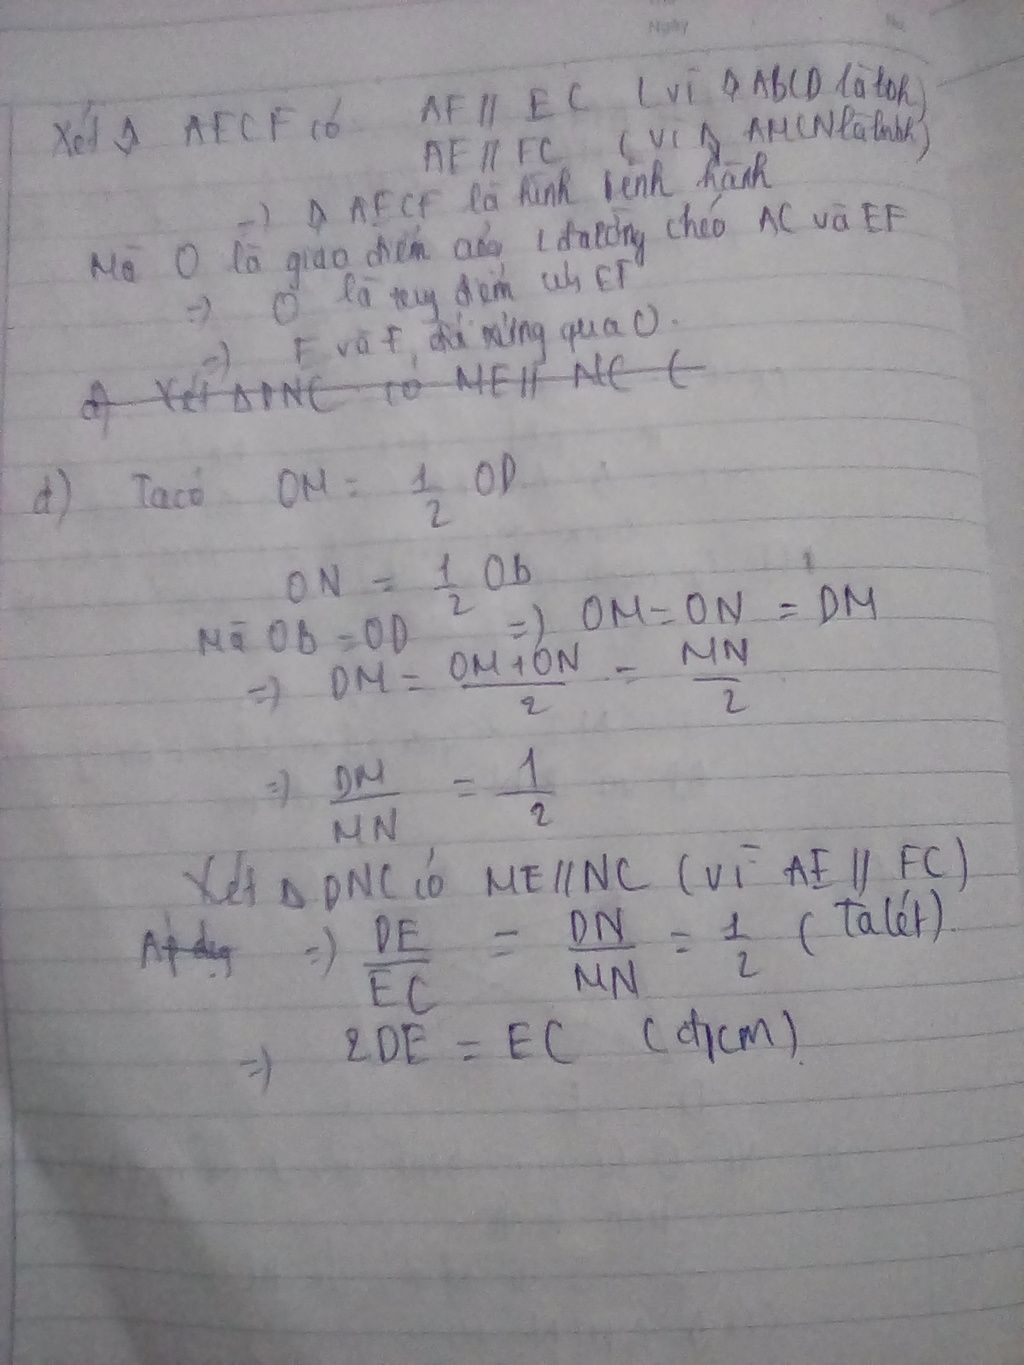 Ngày No.
Xét ◊ AECF có AF // EC (vì ◊ ABCD là hbh)
AE // FC (vì ◊ AMCN là hbh)
=> ◊ AECF là hình bình hành
Mà O là giao điểm của 2 đường chéo AC và EF
=> O là trung điểm của EF
=> E và F đối xứng qua O.
d) Xét ΔDNC có ME // NC (
d) Ta có OM = 1/2 OD
ON = 1/2 OB
Mà OB = OD => OM = ON = DM
=> DM = (OM + ON)/2 = MN/2
=> DM/MN = 1/2
Xét Δ DNC có ME // NC (vì AE // FC)
Áp dụng => DE/EC = DN/MN = 1/2 (Talét).
=> 2DE = EC (đpcm)